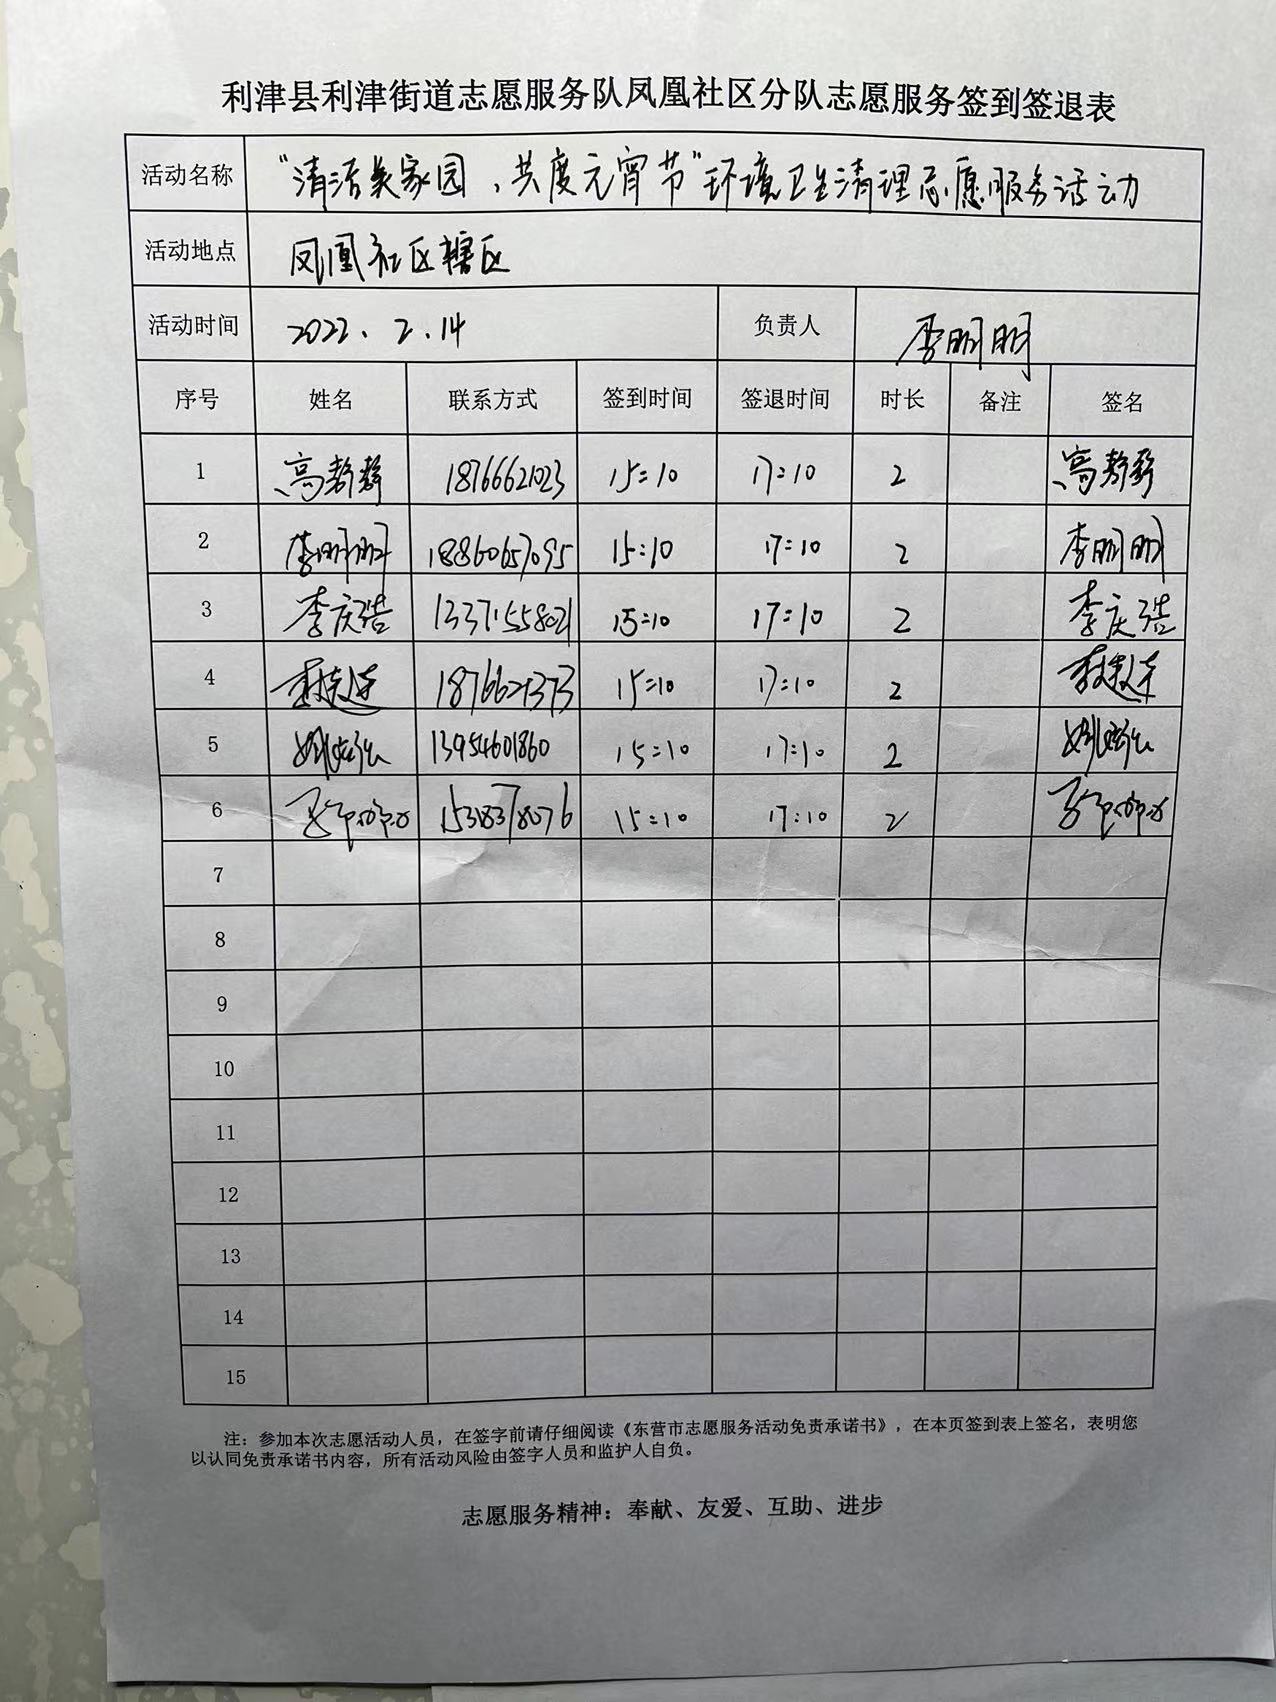 利津县利津街道志愿服务队凤凰社区分队志愿服务签到签退表
活动名称 “清洁美家园、共度元宵节”环境卫生清理志愿服务活动
活动地点 凤凰社区辖区
活动时间 2022、2.14 负责人 李明明
序号 姓名 联系方式 签到时间 签退时间 时长 备注 签名
1 高静静 18766621023 15:10 17:10 2 高静静
2 李明明 18860657095 15:10 17:10 2 李明明
3 李庆浩 13371558021 15:10 17:10 2 李庆浩
4 18766621373 15:10 17:10 2
5 13954601860 15:10 17:10 2
6 1538378076 15:10 17:10 2
7
8
9
10
11
12
13
14
15
注：参加本次志愿活动人员，在签字前请仔细阅读《东营市志愿服务活动免责承诺书》，在本页签到表上签名，表明您
以认同免责承诺书内容，所有活动风险由签字人员和监护人自负。
志愿服务精神：奉献、友爱、互助、进步